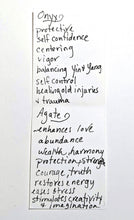 Onyx
protective
self confidence
centering
vigor
balancing Ying Yang
self control
healing old injuries
& trauma
Agate
enhances love
abundance
wealth, harmony
protection, strength
courage, truth
restores energy
eases stress
stimulates creativity
& imagination